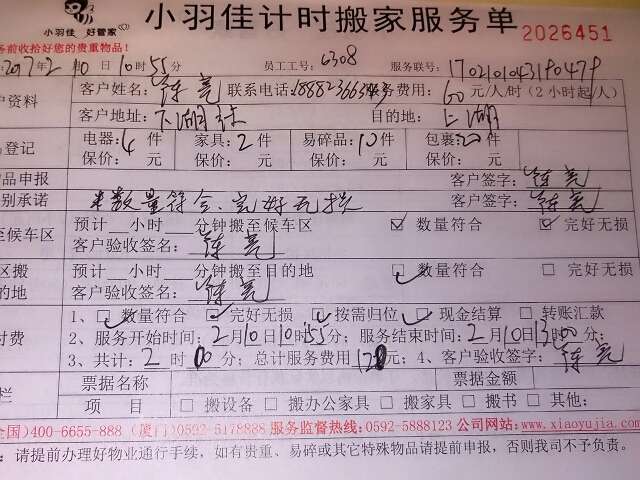 小羽佳计时搬家服务单
小羽佳 好管家
2026451
务前收拾好您的贵重物品!
2017年2月10日10时55分 员工工号:6308 服务联号:
户资料 客户姓名:陈亮 联系电话: 服务费用:60元/人/时(2小时起/人)
客户地址:下湖 目的地:上湖
品登记 电器:4件 家具:2件 易碎品:10件 包裹:20件
保价: 元 保价: 元 保价: 元 保价: 元
品申报 客户签字:陈亮
别承诺 数量符合、完好无损 客户签字:陈亮
至候车区 预计__小时__分钟搬至候车区 ☑数量符合 ☑完好无损
客户验收签名:陈亮
区搬 预计__小时__分钟搬至目的地 ☑数量符合 □完好无损
的地 客户验收签名:陈亮
1、☑数量符合 ☑完好无损 ☑按需归位 ☑现金结算 □转账汇款
付费 2、服务开始时间:2月10日10时55分;服务结束时间:2月10日13时00分;
3、共计:2时00分;总计服务费用120元;4、客户验收签字:陈亮
栏 票据名称 票据金额
项目 □搬设备 □搬办公家具 □搬家具 □搬书 □其他:
全国)400-6655-888 (厦门)0592-5178888 服务监督热线:0592-5888123 公司网站:www.xiaoyujia.com
:请提前办理好物业通行手续,如有贵重、易碎或其它特殊物品请提前申报,否则我司不予负责。